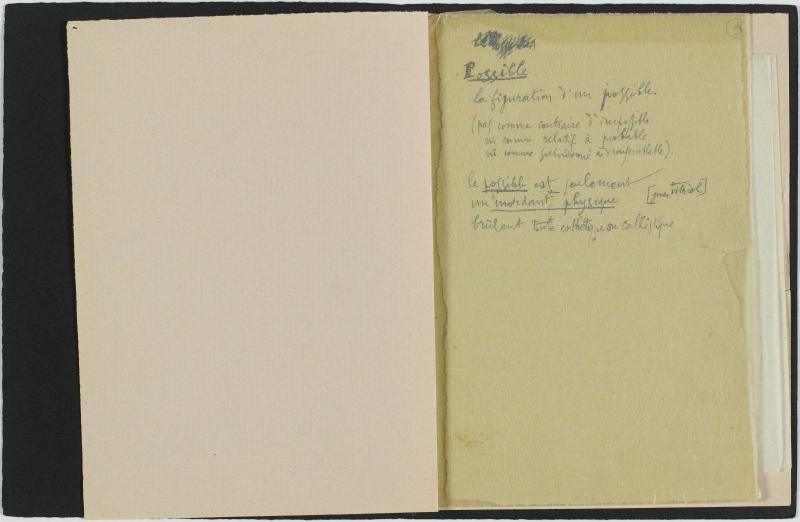 Possible
la figuration d'un possible.
(pas comme contraire d'impossible
ni comme relatif à probable
ni comme subordonné à vraisemblable)
le possible est seulement
un "mordant" physique [genre vitriol]
brûlant toute esthétique ou callistique